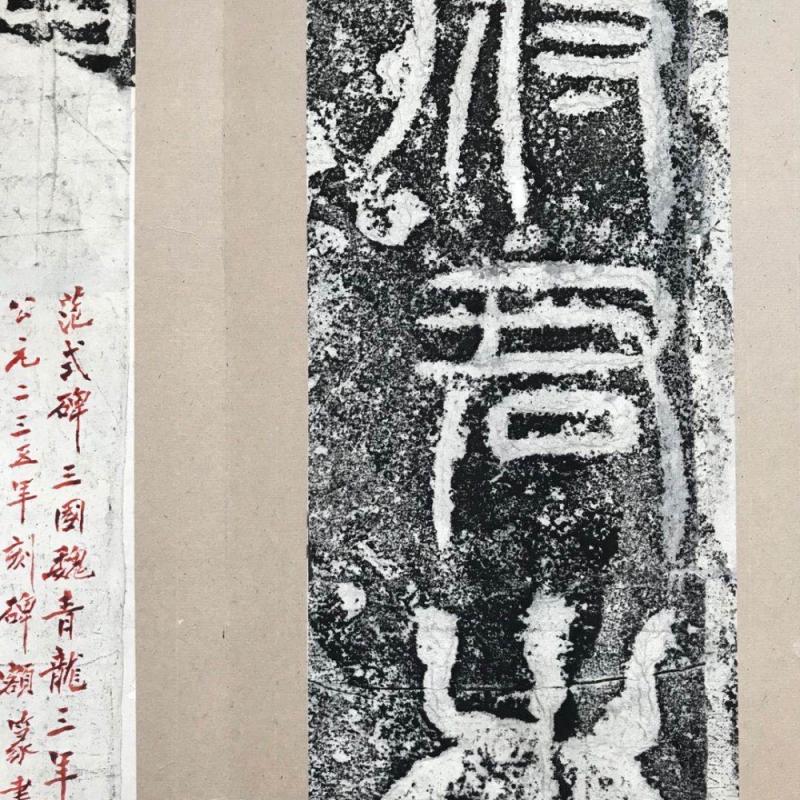 君
范式碑三國魏青龍三年
公元二三五年刻碑額篆書